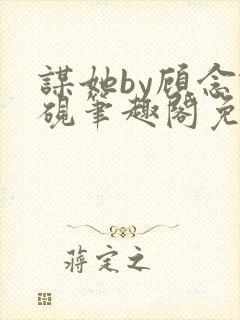 謀她by顾念
硯筆趣閣免
蔣定之